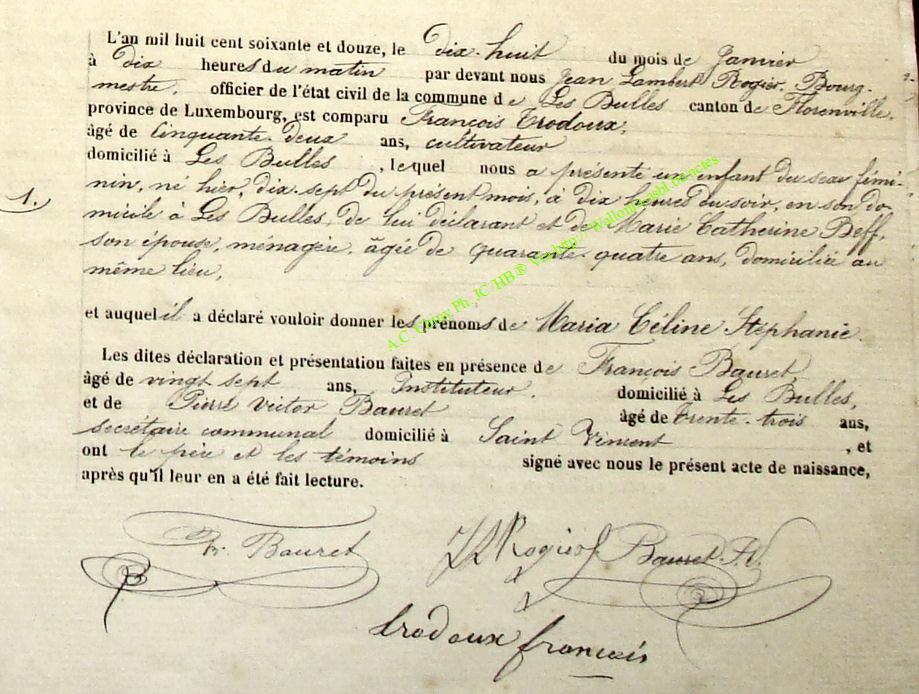 L'an mil huit cent soixante et douze, le dix-huit du mois de Janvier
à dix heures du matin par devant nous Jean Lambert Rogier, Bourg-
mestre, officier de l'état civil de la commune de Les Bulles canton de Florenville,
province de Luxembourg, est comparu François Crodoux,
âgé de Cinquante-deux ans, cultivateur
domicilié à Les Bulles, lequel nous a présenté un enfant du sexe fémi-
1. nin, né hier, dix-sept du présent mois, à dix heures du soir, en son do-
micile à Les Bulles, de lui déclarant et de Marie Catherine Beff,
son épouse, ménagère, âgée de quarante-quatre ans, domiciliée au
même lieu,
et auquel il a déclaré vouloir donner les prénoms de Maria Céline Stéphanie.
Les dites déclaration et présentation faites en présence de François Bauret
âgé de vingt sept ans, Instituteur, domicilié à Les Bulles,
et de Pierre Victor Bauret âgé de trente-trois ans,
secrétaire communal domicilié à Saint Vincent, et
ont le père et les témoins signé avec nous le présent acte de naissance,
après qu'il leur en a été fait lecture.
Bauret JLRogier Bauret
Crodoux françois